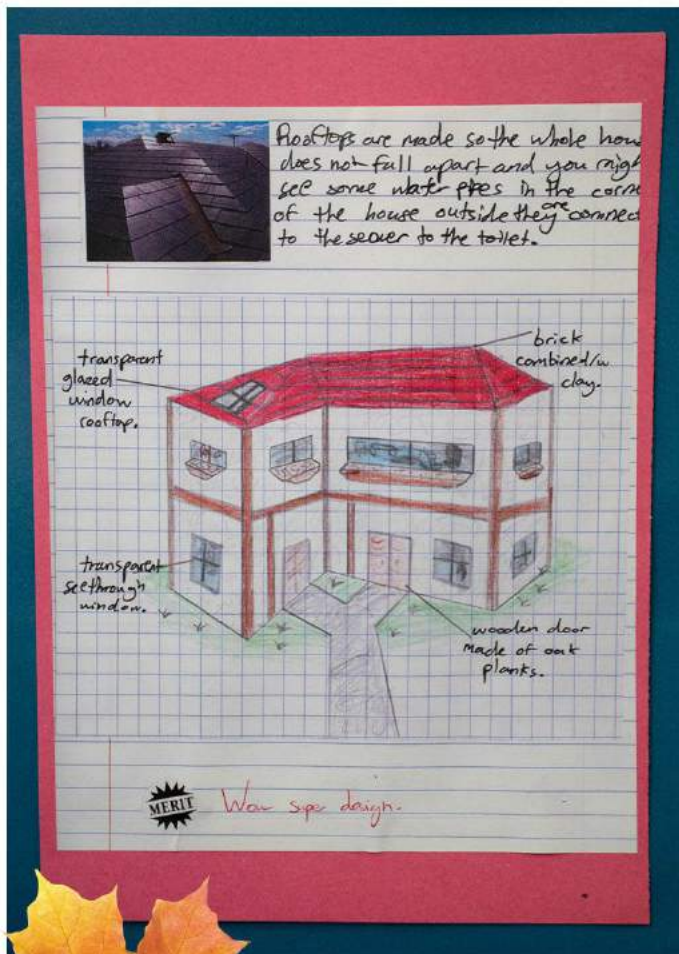 Rooftops are made so the whole hou
does not fall apart and you migh
see some water pipes in the corne
of the house outside they are connec
to the sewer to the toilet.
brick
combined/w
clay.
transparent
glazed
window
rooftop.
transparent
seethrough
window.
wooden door
made of oak
planks.
MERIT
Wow super